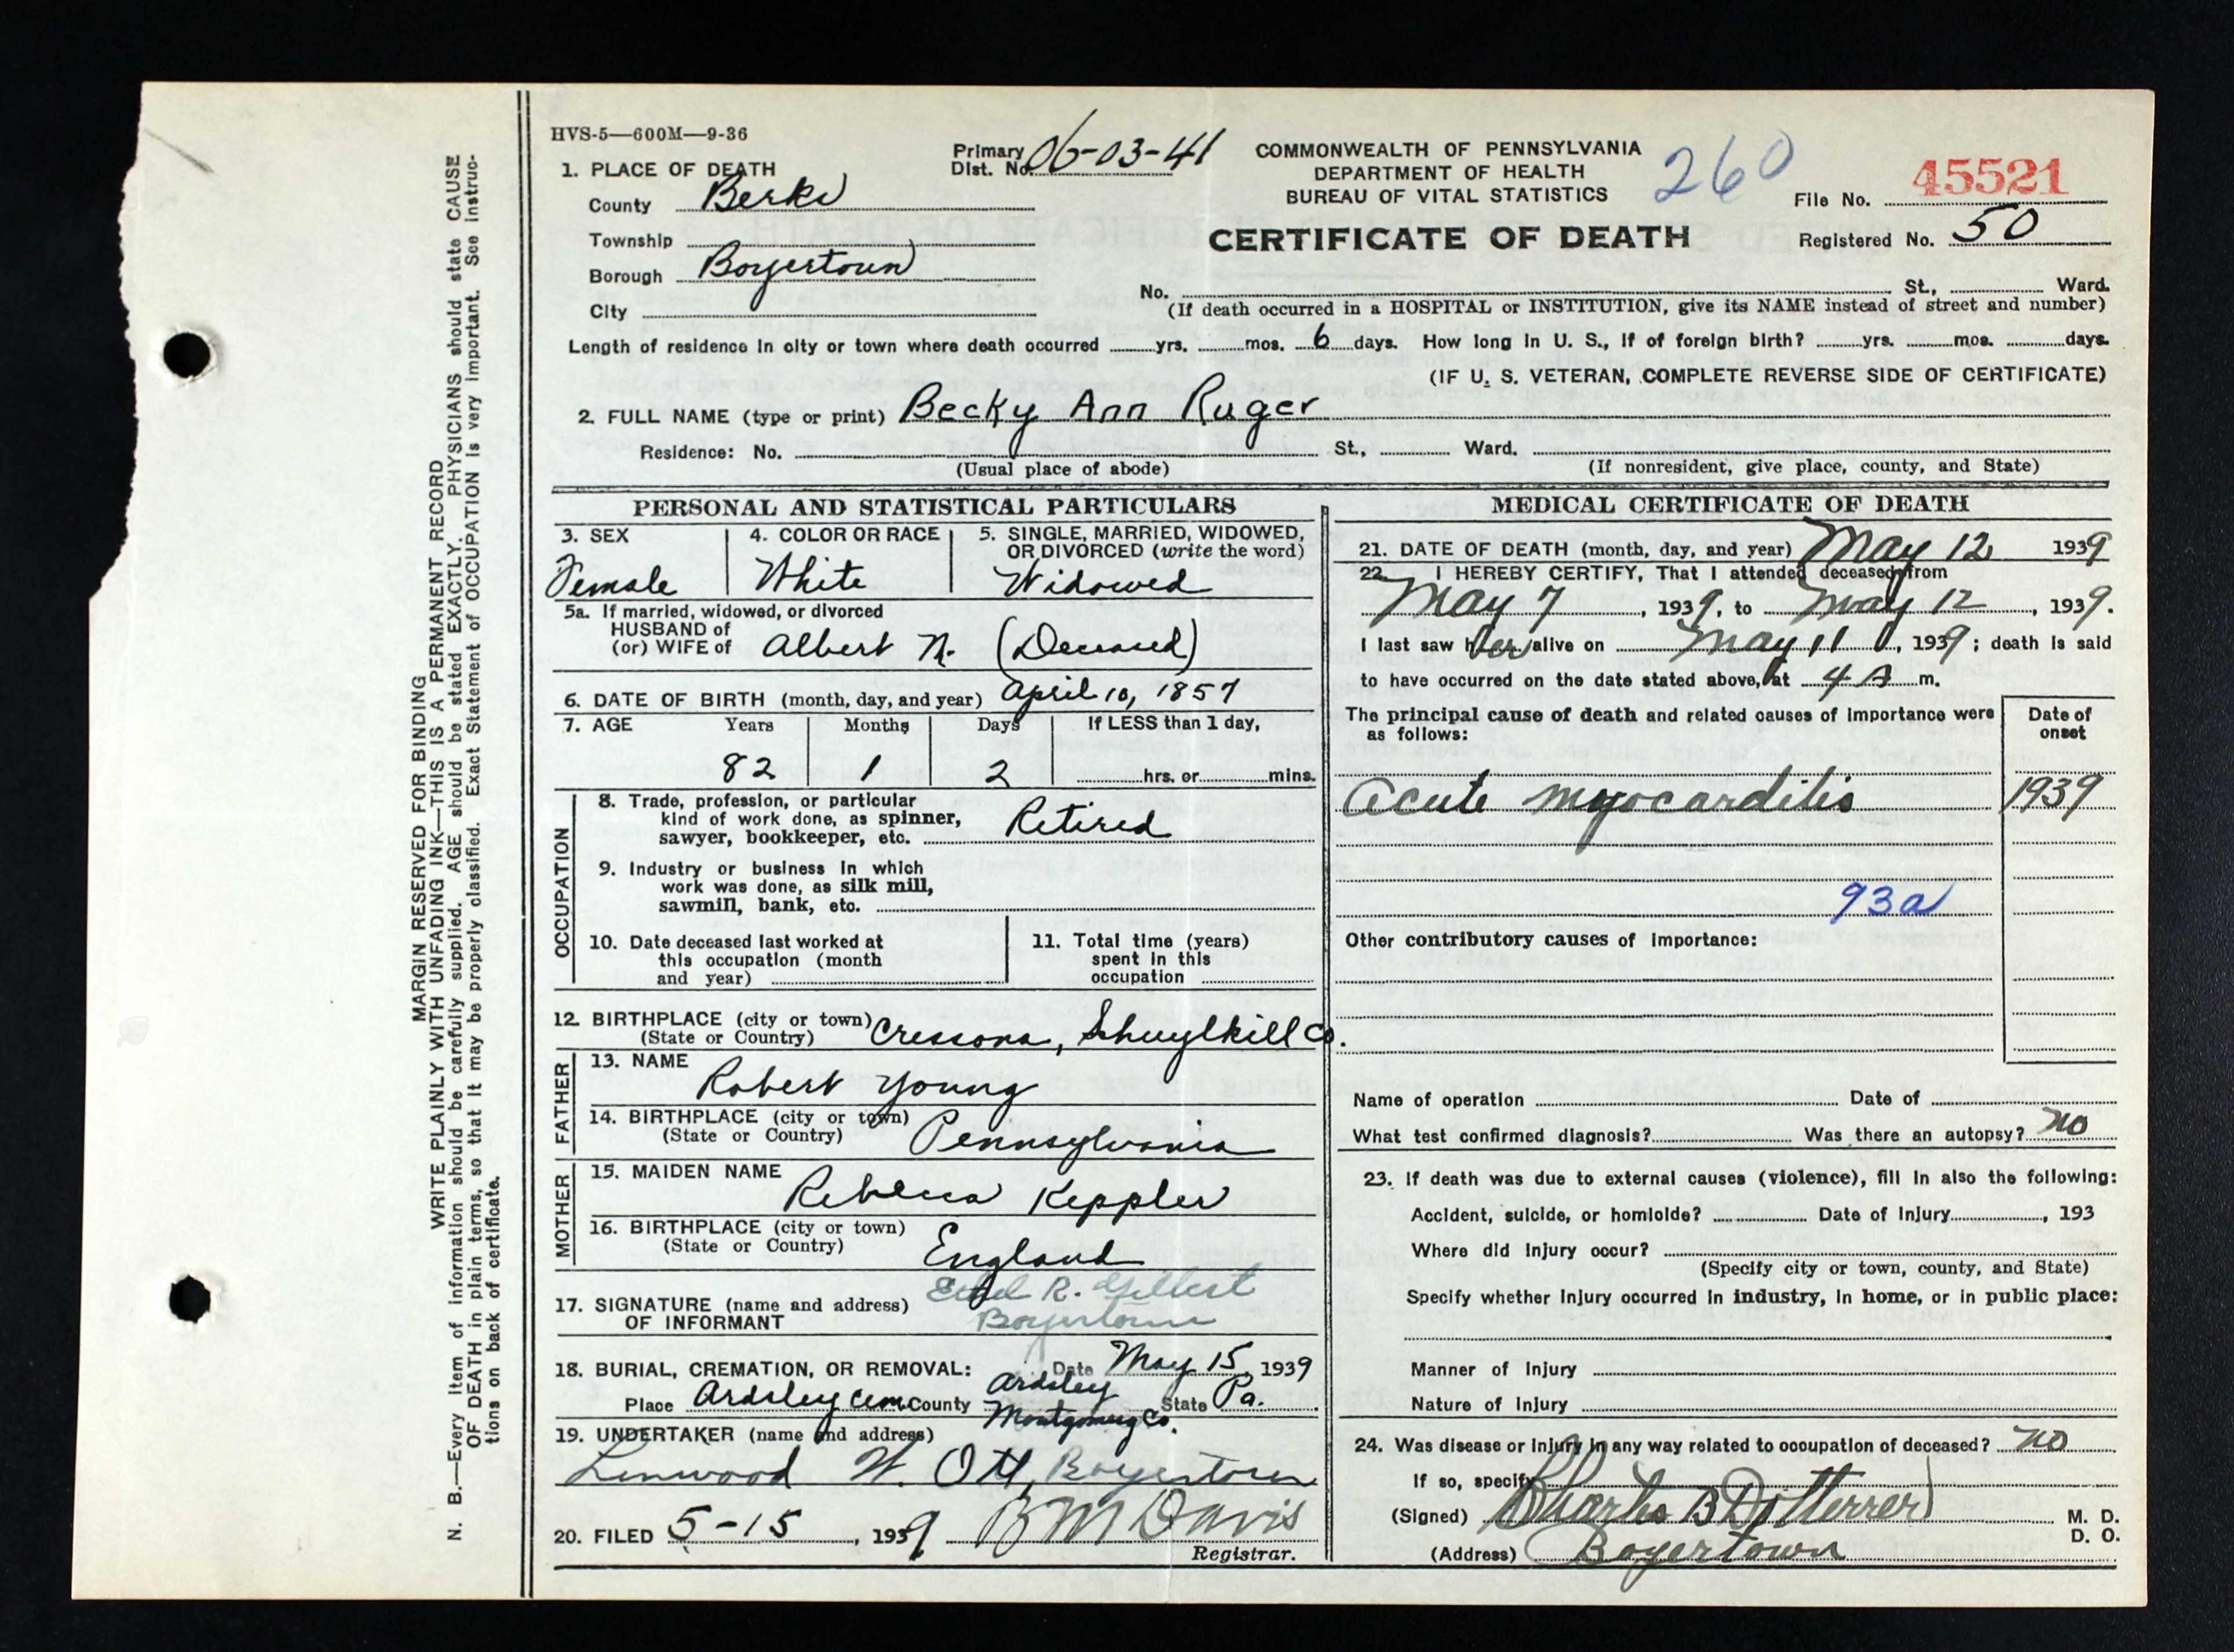 HVS-5—600M—9-36
Primary Dist. No. 06-03-41
COMMONWEALTH OF PENNSYLVANIA
DEPARTMENT OF HEALTH
BUREAU OF VITAL STATISTICS
260
File No. 45521
CERTIFICATE OF DEATH
Registered No. 50
1. PLACE OF DEATH
County Berks
Township
Borough Boyertown
City
No. St., Ward.
(If death occurred in a HOSPITAL or INSTITUTION, give its NAME instead of street and number)
Length of residence in city or town where death occurred yrs. mos. 6 days. How long in U. S., if of foreign birth? yrs. mos. days.
(IF U. S. VETERAN, COMPLETE REVERSE SIDE OF CERTIFICATE)
2. FULL NAME (type or print) Becky Ann Ruger
Residence: No. St., Ward.
(Usual place of abode) (If nonresident, give place, county, and State)
PERSONAL AND STATISTICAL PARTICULARS
3. SEX
Female
4. COLOR OR RACE
White
5. SINGLE, MARRIED, WIDOWED,
OR DIVORCED (write the word)
Widowed
5a. If married, widowed, or divorced
HUSBAND of
(or) WIFE of Albert N. (Deceased)
6. DATE OF BIRTH (month, day, and year) April 10, 1857
7. AGE Years Months Days If LESS than 1 day,
82 1 2 hrs. or mins.
OCCUPATION
8. Trade, profession, or particular
kind of work done, as spinner,
sawyer, bookkeeper, etc. Retired
9. Industry or business in which
work was done, as silk mill,
sawmill, bank, etc.
10. Date deceased last worked at
this occupation (month
and year)
11. Total time (years)
spent in this
occupation
12. BIRTHPLACE (city or town)
(State or Country) Cressona, Shuylkill Co.
FATHER
13. NAME
Robert Young
14. BIRTHPLACE (city or town)
(State or Country) Pennsylvania
MOTHER
15. MAIDEN NAME
Rebecca Keppler
16. BIRTHPLACE (city or town)
(State or Country) England
17. SIGNATURE (name and address) Ethel R. Gilbert
OF INFORMANT Boyertown
18. BURIAL, CREMATION, OR REMOVAL: Date May 15, 1939
Place Ardsley Cem. County Ardsley Montgomery Co. State Pa.
19. UNDERTAKER (name and address)
Linwood W. Ott, Boyertown
20. FILED 5-15, 1939 B M Davis
Registrar.
MEDICAL CERTIFICATE OF DEATH
21. DATE OF DEATH (month, day, and year) May 12, 1939
22. I HEREBY CERTIFY, That I attended deceased from
May 7, 1939, to May 12, 1939.
I last saw her alive on May 11, 1939; death is said
to have occurred on the date stated above, at 4 A m.
The principal cause of death and related causes of importance were
as follows:
Date of
onset
Acute myocarditis 1939
93a
Other contributory causes of importance:
Name of operation Date of
What test confirmed diagnosis? Was there an autopsy? no
23. If death was due to external causes (violence), fill in also the following:
Accident, suicide, or homicide? Date of injury , 193
Where did injury occur?
(Specify city or town, county, and State)
Specify whether injury occurred in industry, in home, or in public place:
Manner of injury
Nature of injury
24. Was disease or injury in any way related to occupation of deceased? no
If so, specify
(Signed) Charles B Dotterrer M. D.
D. O.
(Address) Boyertown
MARGIN RESERVED FOR BINDING
WRITE PLAINLY WITH UNFADING INK—THIS IS A PERMANENT RECORD
N. B.—Every item of information should be carefully supplied. AGE should be stated EXACTLY. PHYSICIANS should state CAUSE
OF DEATH in plain terms, so that it may be properly classified. Exact Statement of OCCUPATION is very important. See instruc-
tions on back of certificate.